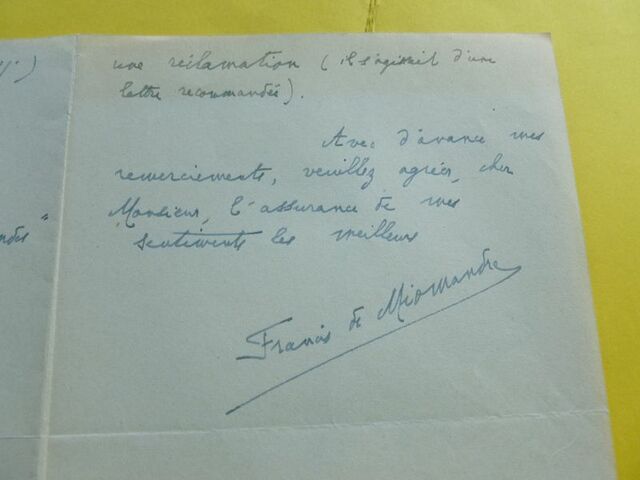 une réclamation (il s'agissait d'une
lettre recommandée).
Avec d'avance mes
remerciements, veuillez agréer, cher
Monsieur, l'assurance de mes
sentiments les meilleurs
Francis de Miomandre